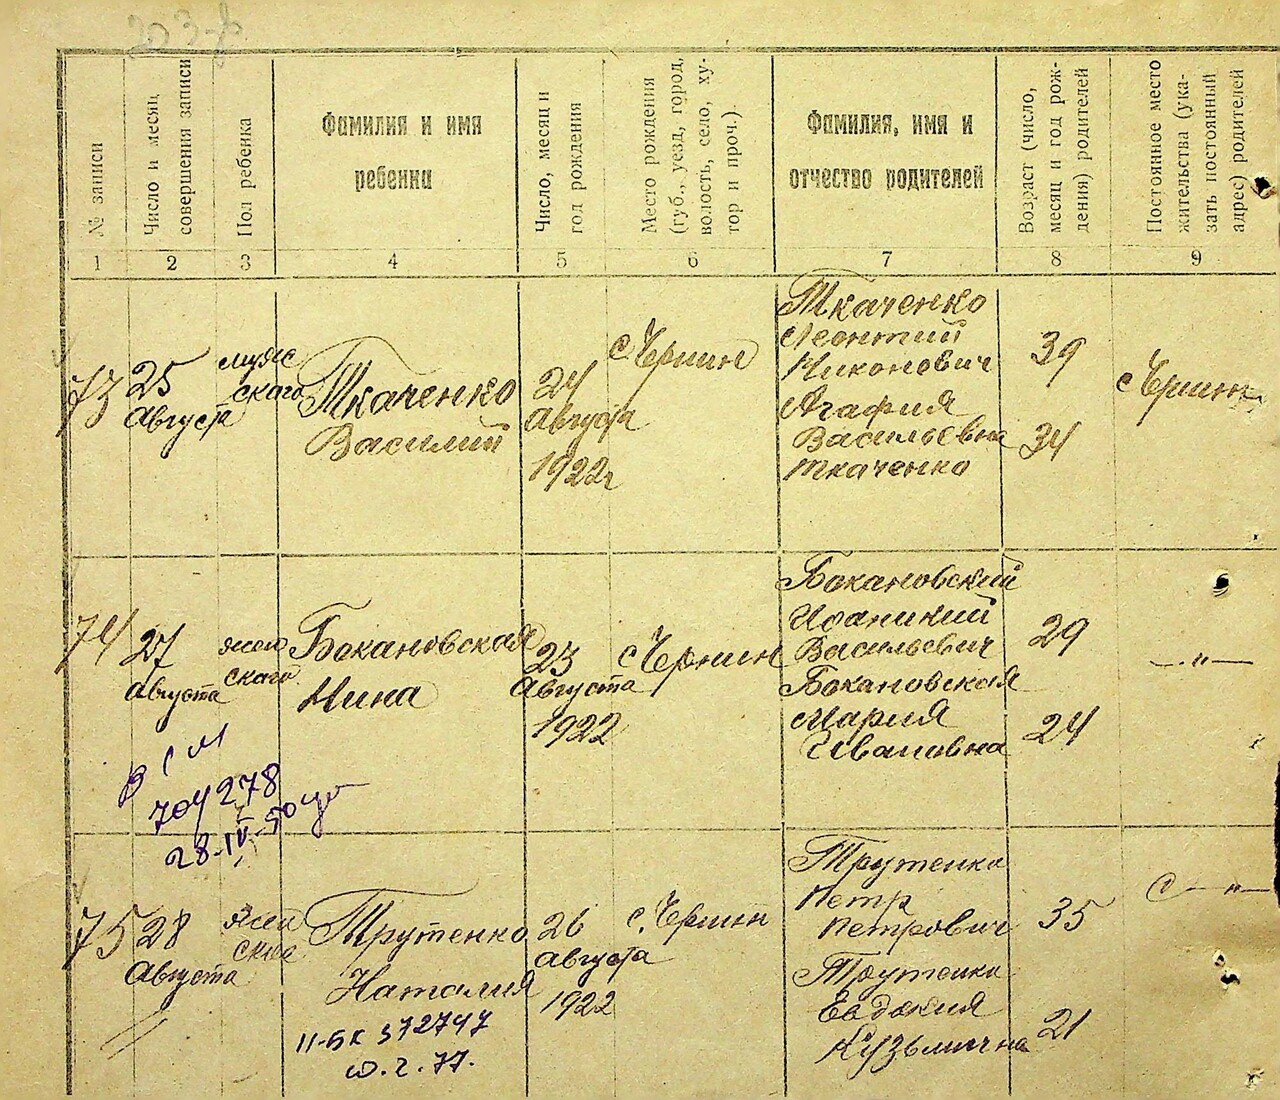 № записи
Число и месяц
совершения записи
Пол ребенка
Фамилия и имя
ребенка
Число, месяц и
год рождения
Место рождения
(губ., уезд, город,
волость, село, ху-
тор и проч.)
Фамилия, имя и
отчество родителей
Возраст (число,
месяц и год рож-
дения) родителей
Постоянное место
жительства (ука-
зать постоянный
адрес) родителей
1 2 3 4 5 6 7 8 9
73
25
Августа
муж
ского
Ткаченко
Василий
24
Августа
1922г
с Чернин
Ткаченко
Леонтий
Никонович
Агафия
Васильевна
Ткаченко
39
34
с Чернин
74
27
Августа
жен
ского
Бокановская
Нина
23
Августа
1922
с Чернин
Бокановский
Иоаникий
Васильевич
Бокановская
Мария
Ивановна
29
24
—„—
704278
28-IV-50
75
28
Августа
жен
ское
Трутенко
Наталия
26
Августа
1922
с. Чернин
Трутенко
Петр
Петрович
Трутенко
Евдокия
Кузьминична
35
21
с —„—
II-БК 372747